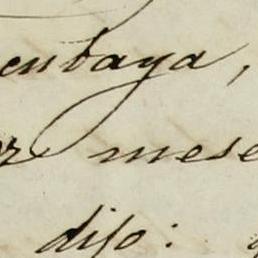 cubaya,
mese
dijo: